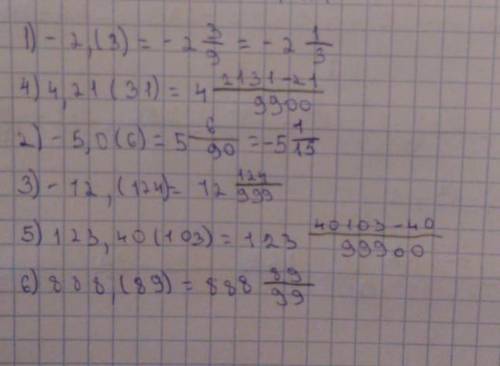 1) - 2,(3) = - 2 3/9 = - 2 1/3
4) 4,21(31) = 4 2131-21/9900
2) - 5,0(6) = 5 6/90 = -5 1/15
3) - 12,(124) = 12 124/999
5) 123,40(103) = 123 40103-40/99900
6) 888,(89) = 888 89/99